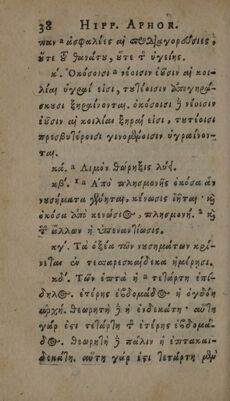 38 HIPP. APHOR.
παν ἀσφαλέες αἱ προαγορεύσιες,
οὔτε τοῦ θανάτου, οὔτε τῆς ὑγιείης.
κ. Ὁκόσοισι νέοισιν ἐοῦσιν αἱ κοι-
λίαι ὑγραί εἰσι, τουτέοισιν ἀπογηρά-
σκουσι ξηραίνονται. ὁκόσοισι δὲ νέοισιν
ἐοῦσιν αἱ κοιλίαι ξηραί εἰσι, τουτέοισι
πρεσβυτέροισι γενομένοισι ὑγραίνον-
ται.
κά. Λιμὸν θώρηξις λύει.
κβ΄. Ἀπὸ πλησμονῆς ὁκόσα ἂν
νουσήματα γένηται, κένωσις ἰῆται·
ὁκόσα ἀπὸ κενώσεως, πλησμονή.
τῶν ἄλλων ἡ ὑπεναντίωσις.
κγ΄. Τὰ ὀξέα τῶν νουσημάτων κρί-
νεται ἐν τεσσαρεσκαίδεκα ἡμέρῃσι.
κδ΄. Τῶν ἑπτὰ ἡ τετάρτη ἐπί-
δηλος. ἑτέρης ἑβδομάδος ἡ ὀγδόη
ἀρχή. θεωρητὴ δὲ ἡ ἑνδεκάτη· αὕτη
γάρ ἐστι τετάρτη τῆς ἑτέρης ἑβδομά-
δος. θεωρητὴ δὲ πάλιν ἡ ἑπτακαι-
δεκάτη. αὕτη γάρ ἐστι τετάρτη μὲν